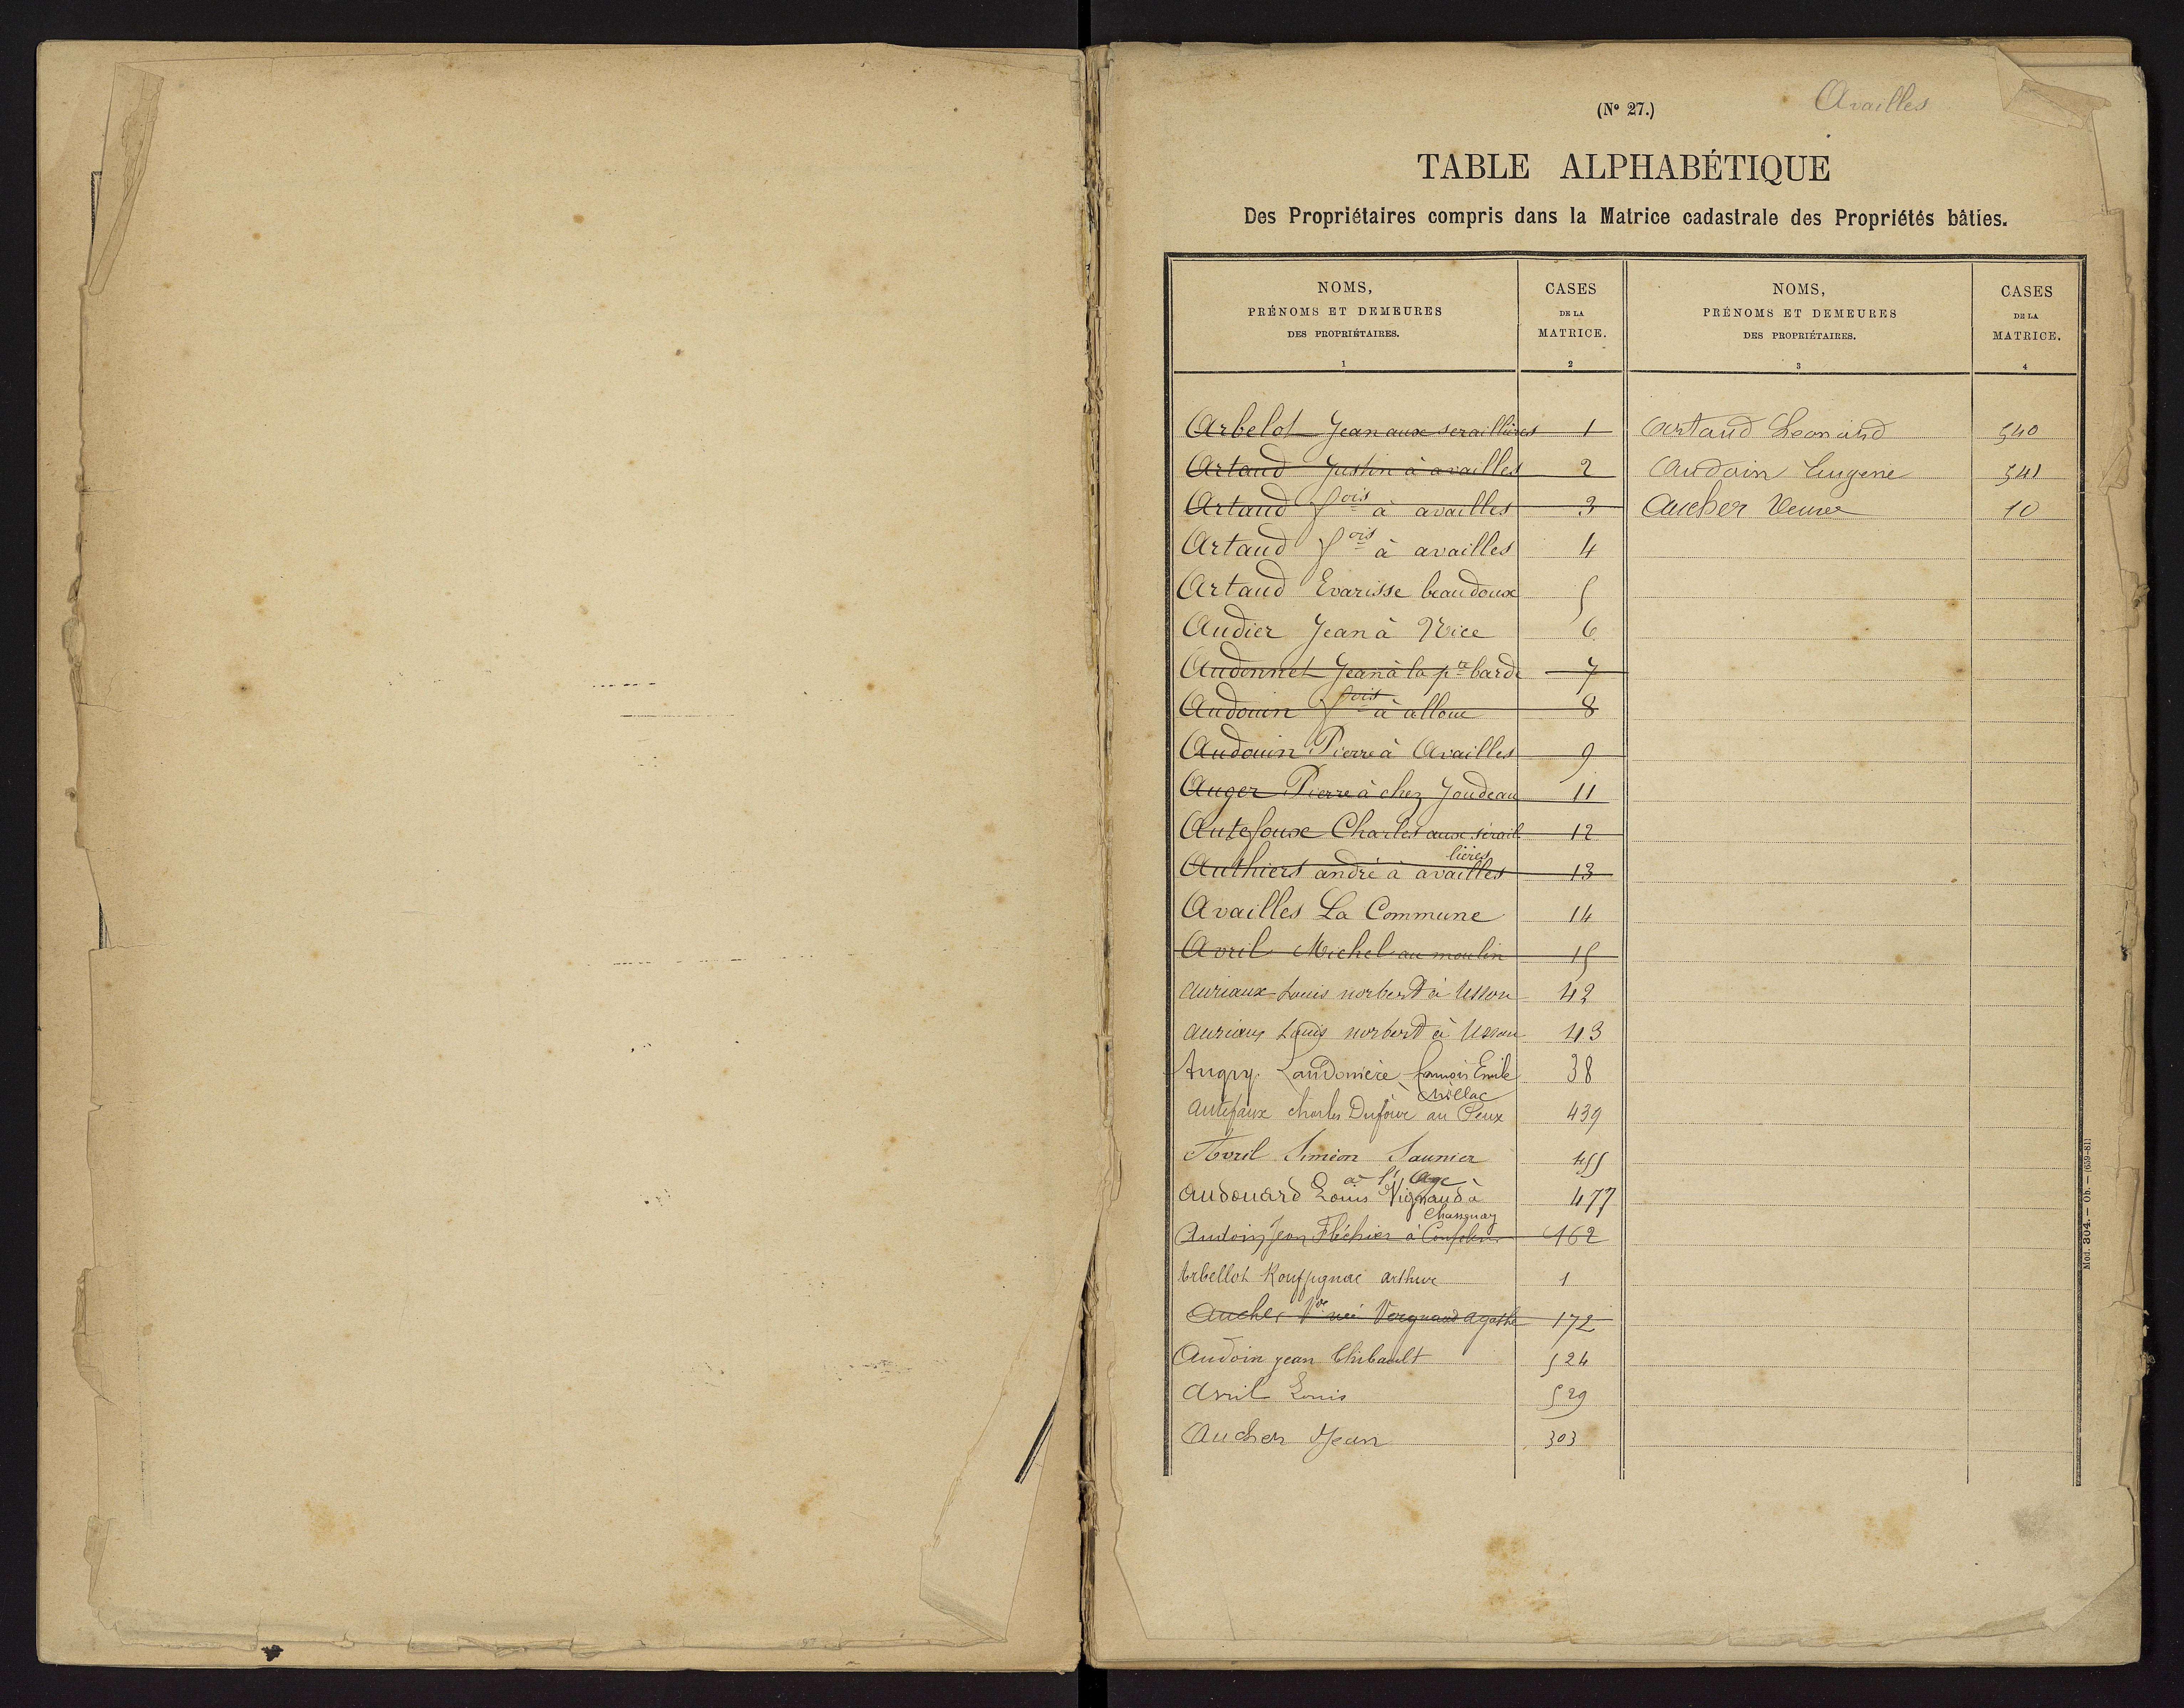 (N° 27.)
Availles
TABLE ALPHABÉTIQUE
Des Propriétaires compris dans la Matrice cadastrale des Propriétés bâties.
NOMS,
PRÉNOMS ET DEMEURES
DES PROPRIÉTAIRES.
1
CASES
DE LA
MATRICE.
2
NOMS,
PRÉNOMS ET DEMEURES
DES PROPRIÉTAIRES.
3
CASES
DE LA
MATRICE.
4
Arbelot Jean aux seraillières 1
Artaud Justin à availles 2
Artaud fois à availles 3
Artaud fois à availles 4
Artaud Evarisse beaudoux 5
Audier Jean à Nice 6
Audonnet Jean à la pte barde 7
Audouin fois à alloue 8
Audouin Pierre à Availles 9
Auger Pierre à chez Joudeau 11
Autefoux Charles aux sérail 12
lières
Authiers andré à availles 13
Availles La Commune 14
Avril Michel au moulin 15
Auriaux Louis norbert à Usson 42
Auriaux Louis norbert à Usson 43
Augry Laudonière françois Emile 38
à Millac
Antefaux charles Dufour au Peux 439
Avril Siméon Saunier 455
à l'Age
Audouard Louis Vignaud à 477
Chassgnay
Audoin Jean Fléchier à 162
Arbellot Rouffignac arthur 1
Aucher Vve née Vergnaud agathe 172
Audoin jean Thibault 524
Avril Louis 529
Aucher Jean 303
Artaud Leonard 540
Audoin Eugene 541
Aucher Veuve 10
Mod. 304. — Ob. — (639-81)